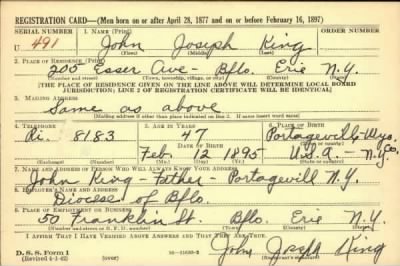 REGISTRATION CARD—(Men born on or after April 28, 1877 and on or before February 16, 1897)
SERIAL NUMBER 1. NAME (Print)
U 491 John Joseph King
(First) (Middle) (Last)
2. PLACE OF RESIDENCE (Print)
205 Esser Ave - Bflo. Erie N.Y.
(Number and street) (Town, township, village, or city) (County) (State)
[THE PLACE OF RESIDENCE GIVEN ON THE LINE ABOVE WILL DETERMINE LOCAL BOARD
JURISDICTION; LINE 2 OF REGISTRATION CERTIFICATE WILL BE IDENTICAL]
3. MAILING ADDRESS
Same as above
(Mailing address if other than place indicated on line 2. If same insert word same)
4. TELEPHONE 5. AGE IN YEARS 6. PLACE OF BIRTH
Ri. 8183 47 Portageville Wyo. Co.
DATE OF BIRTH (Town or county)
Feb. 12 1895 U.S.A - N.Y.
(Exchange) (Number) (Mo.) (Day) (Yr.) (State or country)
7. NAME AND ADDRESS OF PERSON WHO WILL ALWAYS KNOW YOUR ADDRESS
John King - Father - Portagevill N.Y.
8. EMPLOYER'S NAME AND ADDRESS
Diocese of Bflo.
9. PLACE OF EMPLOYMENT OR BUSINESS
50 Franklin St. Bflo. Erie N.Y.
(Number and street or R. F. D. number) (Town) (County) (State)
I AFFIRM THAT I HAVE VERIFIED ABOVE ANSWERS AND THAT THEY ARE TRUE.
D. S. S. Form 1
(Revised 4-1-42) (over) John Joseph King
(Registrant's signature)